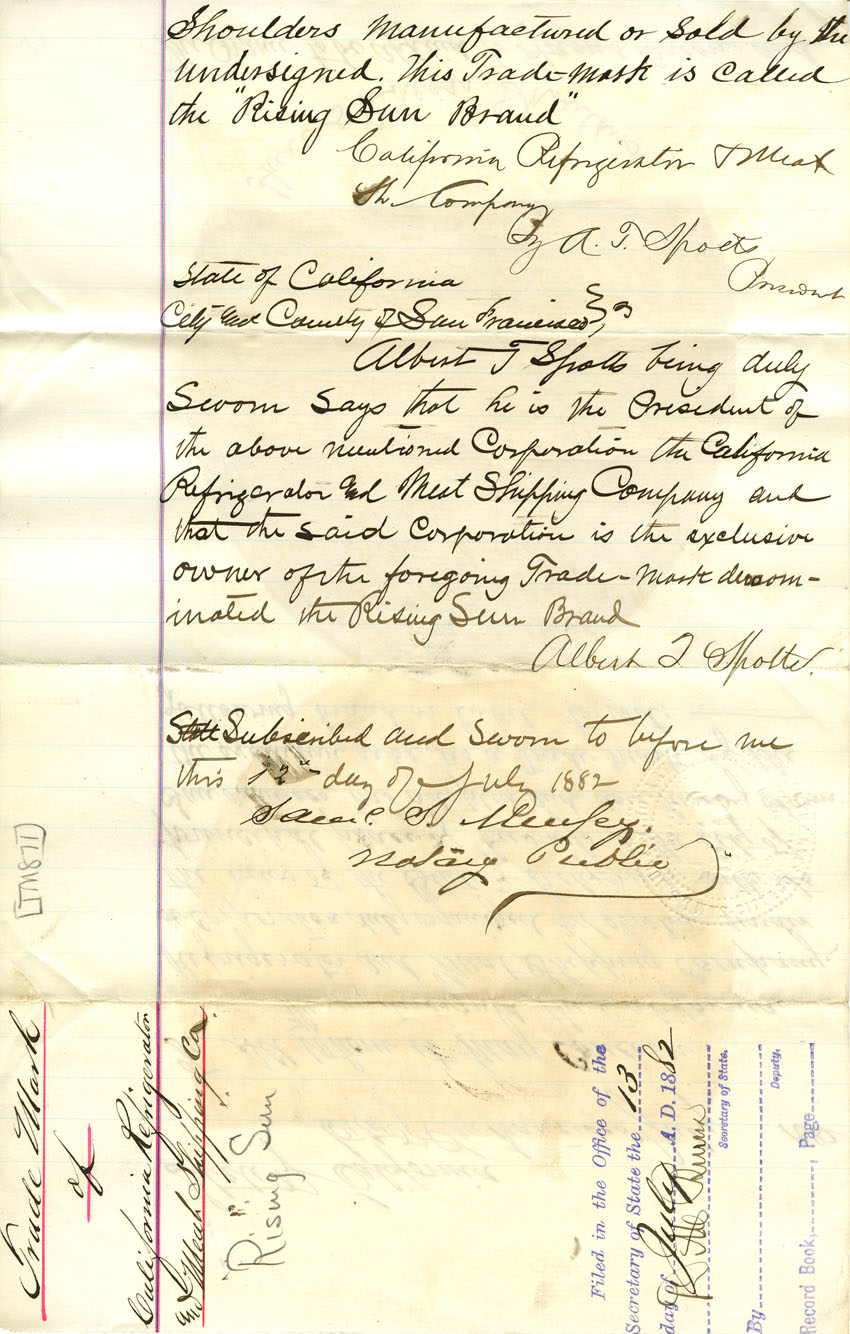 Shoulders manufactured or sold by the
undersigned. This Trade-mark is called
the "Rising Sun Brand"
California Refrigerator & Meat
Sh. Company
By A. T. Spotts
President
State of California
City and County of San Francisco } ss
Albert T Spotts being duly
Sworn says that he is the President of
the above mentioned Corporation the California
Refrigerator and Meat Shipping Company and
that the said Corporation is the exclusive
owner of the foregoing Trade-mark denom-
inated the Rising Sun Brand
Albert T Spotts.
Subscribed and Sworn to before me
this 12th day of July 1882
Notary Public
TM877
Trade Mark
of
California Refrigerator
and Meat Shipping Co.
"Rising Sun
Filed in the Office of the
Secretary of State the 13
day of July A. D. 1882
Secretary of State.
By
Deputy.
Record Book, , Page